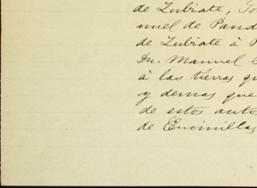 de Zubiate, To
nuel de Pand
de Zubiate á P
Dn. Manuel 
á las tierras qu
y demas que
de estos auto
de Encinillas